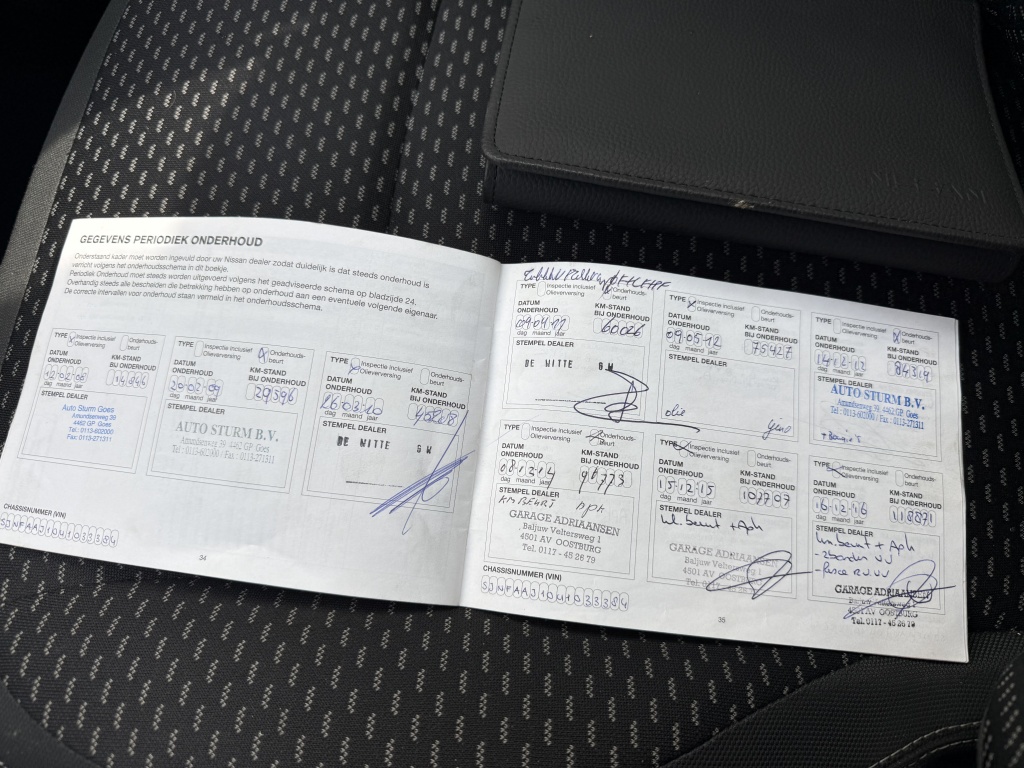 NISSAN
GEGEVENS PERIODIEK ONDERHOUD
Onderstaand kader moet worden ingevuld door uw Nissan dealer zodat duidelijk is dat steeds onderhoud is
verricht volgens het onderhoudsschema in dit boekje.
Periodiek Onderhoud moet steeds worden uitgevoerd volgens het geadviseerde schema op bladzijde 24.
Overhandig steeds alle bescheiden die betrekking hebben op onderhoud aan een eventuele volgende eigenaar.
De correcte intervallen voor onderhoud staan vermeld in het onderhoudsschema.
TYPE Inspectie inclusief Olieverversing Onderhouds-beurt
DATUM ONDERHOUD KM-STAND BIJ ONDERHOUD
dag maand jaar
STEMPEL DEALER
Auto Sturm Goes
Amundsenweg 39
4462 GP Goes
Tel.: 0113-602000
Fax: 0113-271311
TYPE Inspectie inclusief Olieverversing Onderhouds-beurt
DATUM ONDERHOUD KM-STAND BIJ ONDERHOUD
20-02-09 29596
dag maand jaar
STEMPEL DEALER
AUTO STURM B.V.
Amundsenweg 39, 4462 GP Goes
Tel.: 0113-602000 / Fax.: 0113-271311
TYPE Inspectie inclusief Olieverversing Onderhouds-beurt
DATUM ONDERHOUD KM-STAND BIJ ONDERHOUD
26-03-10
dag maand jaar
STEMPEL DEALER
DE WITTE GW
CHASSISNUMMER (VIN)
SJNFAAJ10U1033384
34
TYPE Inspectie inclusief Olieverversing Onderhouds-beurt
DATUM ONDERHOUD KM-STAND BIJ ONDERHOUD
09-04-11 60026
dag maand jaar
STEMPEL DEALER
DE WITTE GW
TYPE Inspectie inclusief Olieverversing Onderhouds-beurt
DATUM ONDERHOUD KM-STAND BIJ ONDERHOUD
09-05-12 75427
dag maand jaar
STEMPEL DEALER
olie
TYPE Inspectie inclusief Olieverversing Onderhouds-beurt
DATUM ONDERHOUD KM-STAND BIJ ONDERHOUD
14-12-12 84319
dag maand jaar
STEMPEL DEALER
AUTO STURM B.V.
Amundsenweg 39, 4462 GP Goes
Tel.: 0113-602000 / Fax.: 0113-271311
+ Bougie's
TYPE Inspectie inclusief Olieverversing Onderhouds-beurt
DATUM ONDERHOUD KM-STAND BIJ ONDERHOUD
dag maand jaar
STEMPEL DEALER
KM BEURT APK
GARAGE ADRIAANSEN
Baljuw Veltersweg 1
4501 AV OOSTBURG
Tel. 0117 - 45 26 79
TYPE Inspectie inclusief Olieverversing Onderhouds-beurt
DATUM ONDERHOUD KM-STAND BIJ ONDERHOUD
15-12-15 107707
dag maand jaar
STEMPEL DEALER
kl. beurt + Apk
GARAGE ADRIAANSEN
Baljuw Veltersweg 1
4501 AV OOSTBURG
Tel. 0117 - 45 26 79
TYPE Inspectie inclusief Olieverversing Onderhouds-beurt
DATUM ONDERHOUD KM-STAND BIJ ONDERHOUD
16-12-16 118871
dag maand jaar
STEMPEL DEALER
km. beurt + Apk
GARAGE ADRIAANSEN
4501 AV OOSTBURG
Tel. 0117 - 45 26 79
CHASSISNUMMER (VIN)
SJNFAAJ10U1033384
35